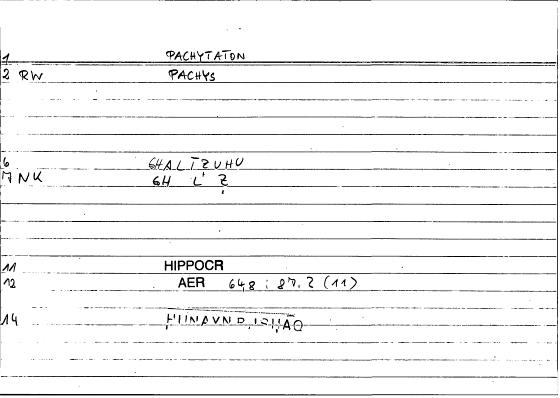 1 PACHYTATON
2 RW PACHYS
6 GHALTZUHU
7 NK GH L' Ẓ
11 HIPPOCR
12 AER 64,8 : 87.2 (11)
14